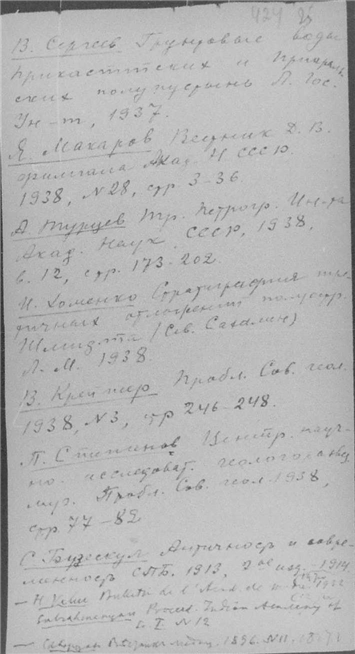 424
В. Сергеев Грунтовые воды
Прикаспийских и
ских полупустынь Л. Гос.
Ун-т, 1937.
Я. Макаров Вестник Д. В.
филиала Акад. Н СССР
1938, №28, стр 3-36.
Тр. Петрогр. Ин-та
Акад. Наук СССР, 1938,
в. 12, стр. 173-202.
И. Хоменко Стратиграфия тре-
тичных отложений полуостр.
Шмидта (Сев. Сахалин)
Л. М. 1938
В. Крейтер Пробл. Сов. геол.
1938, №3, стр 246-248.
П. Степанов Центр. науч-
но. исследоват. геолого-развед
Пробл. Сов. геол 1938,
стр 77-82
С. Бузескул Античность и совре-
менность СПБ. 1913, 2ое изд. 1914
Proceed. Indian Academy of
№12
1896 №11